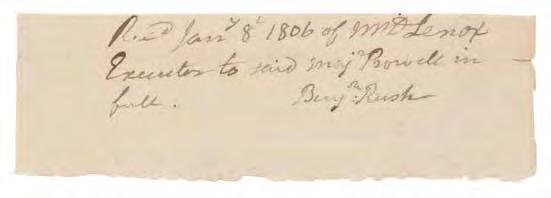 Rec.d Jan.y 8.t 1806 of Mr D Lenox
Executor to said Maj.r Powell in
full. Benj.n Rush